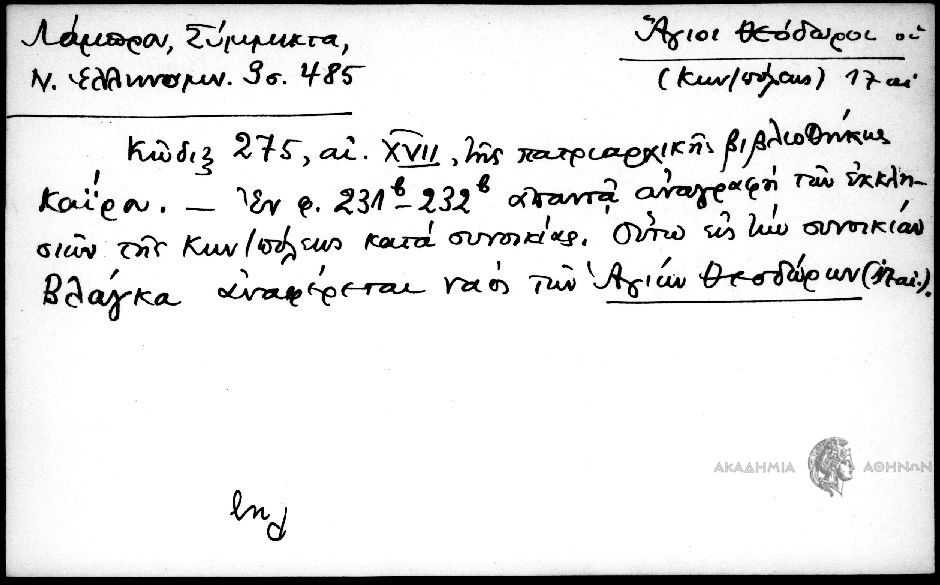 Λάμπρου, Σύμμικτα,
Ν. Ἑλληνομν. 9σ. 485
Ἅγιοι Θεόδωροι οἱ
(Κων/πόλεως) 17 αἰ
Κῶδιξ 275, αἰ. XVII, τῆς πατριαρχικῆς βιβλιοθήκης
Καΐρου. — Ἐν φ. 231β–232β ἀπαντᾷ ἀναγραφή τῶν ἐκκλη-
σιῶν τῆς Κων/πόλεως κατά συνοικίας. Οὕτω εἰς τήν συνοικίαν
Βλάγκα ἀναφέρεται ναός τῶν Ἁγίων Θεοδώρων (17 αἰ.).
ΑΚΑΔΗΜΙΑ ΑΘΗΝΩΝ